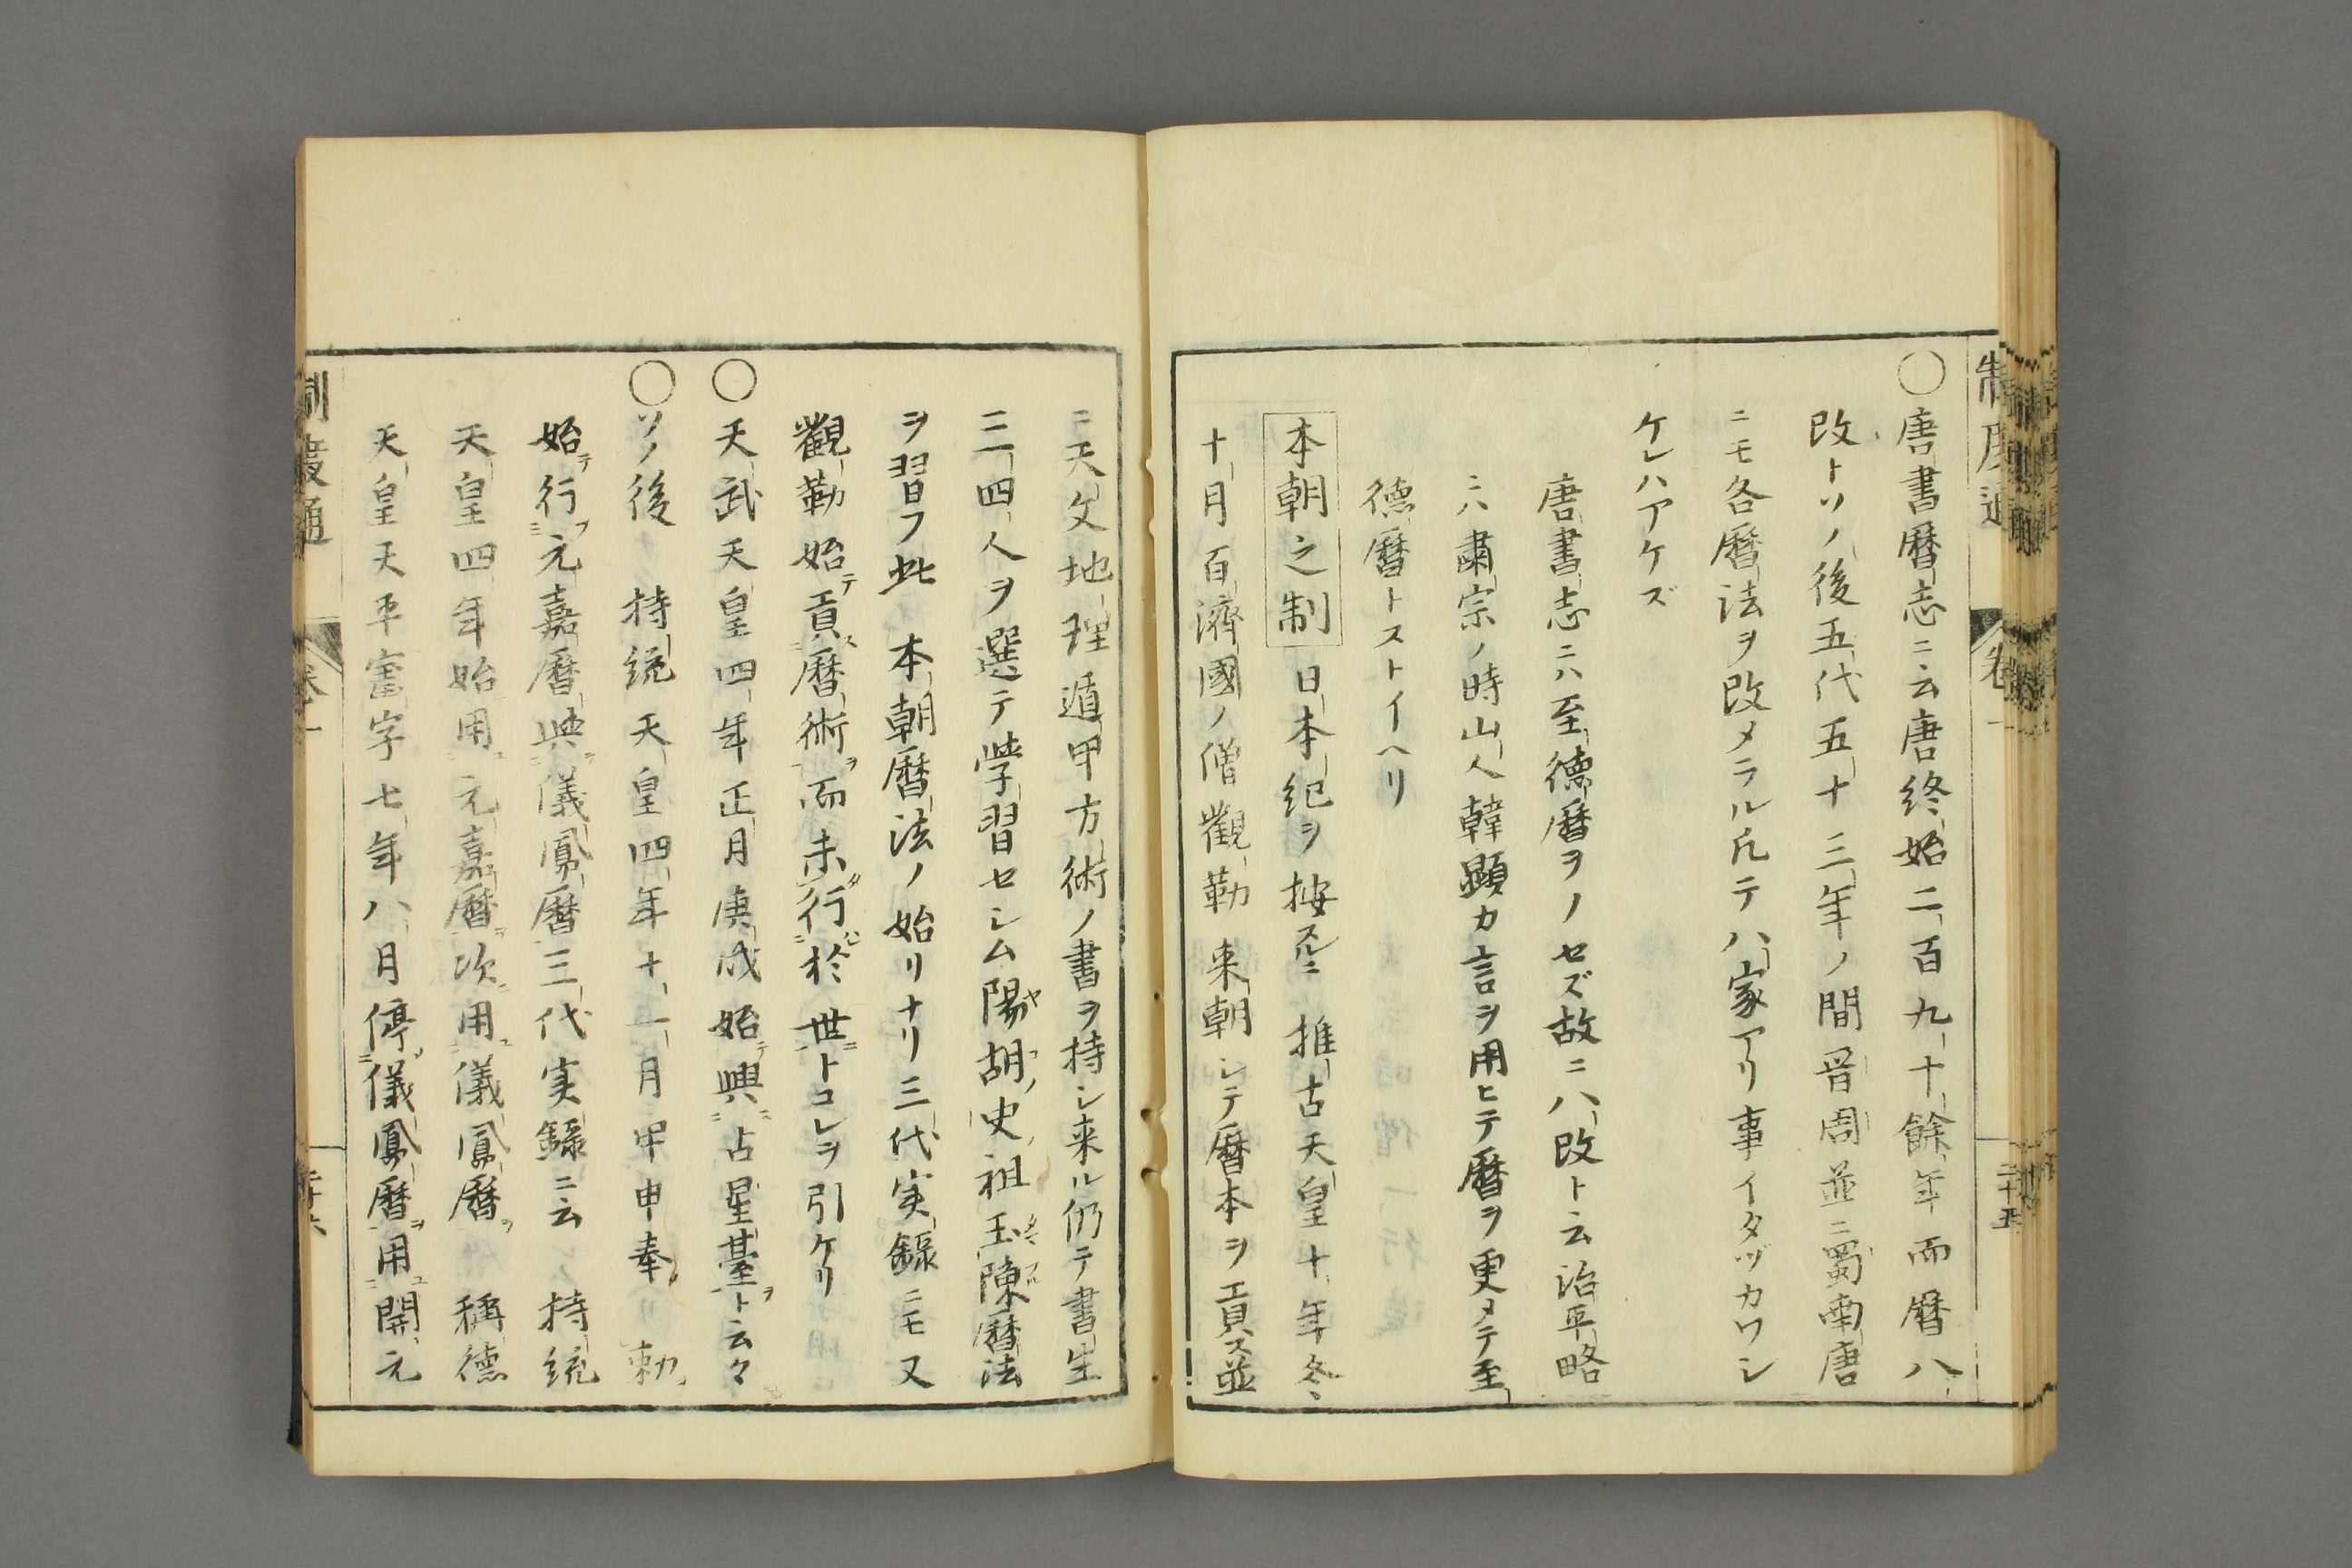 ○唐書曆志ニ云唐終始二百九十餘年而曆八
改トソノ後五代五十三年ノ間晋周並ニ蜀南唐
ニモ各曆法ヲ改メラル凡テ八家アリ事イタヅカワシ
ケレハアケズ
唐書志ニハ至德曆ヲノセズ故ニ八改ト云治平略
ニハ肅宗ノ時山人韓顯カ言ヲ用ヒテ曆ヲ更メテ至
德曆トストイヘリ
本朝之制 日本紀ヲ按スルニ推古天皇十年冬
十月百濟國ノ僧觀勒來朝シテ曆本ヲ貢ス並
制度通 卷一 二十五
ニ天文地理遁甲方術ノ書ヲ持シ来ル仍テ書生
三四人ヲ選テ学習セシム陽胡史祖玉陳曆法
ヲ習フ此 本朝曆法ノ始リナリ三代実錄ニモ又
觀勒始テ貢ス曆術ヲ而未タ行ハ於世ニトコレヲ引ケリ
○天武天皇四年正月庚戌始テ興ニ占星臺ヲト云々
○ソノ後 持統天皇四年十一月甲申奉リ勅
始テ行フ元嘉曆與儀鳳曆三代実錄ニ云 持統
天皇四年始用ユ元嘉曆ヲ次用ユ儀鳳曆ヲ 稱德
天皇天平寶字七年八月停儀鳳曆ヲ用ユ開元
制度通 卷一 二十六